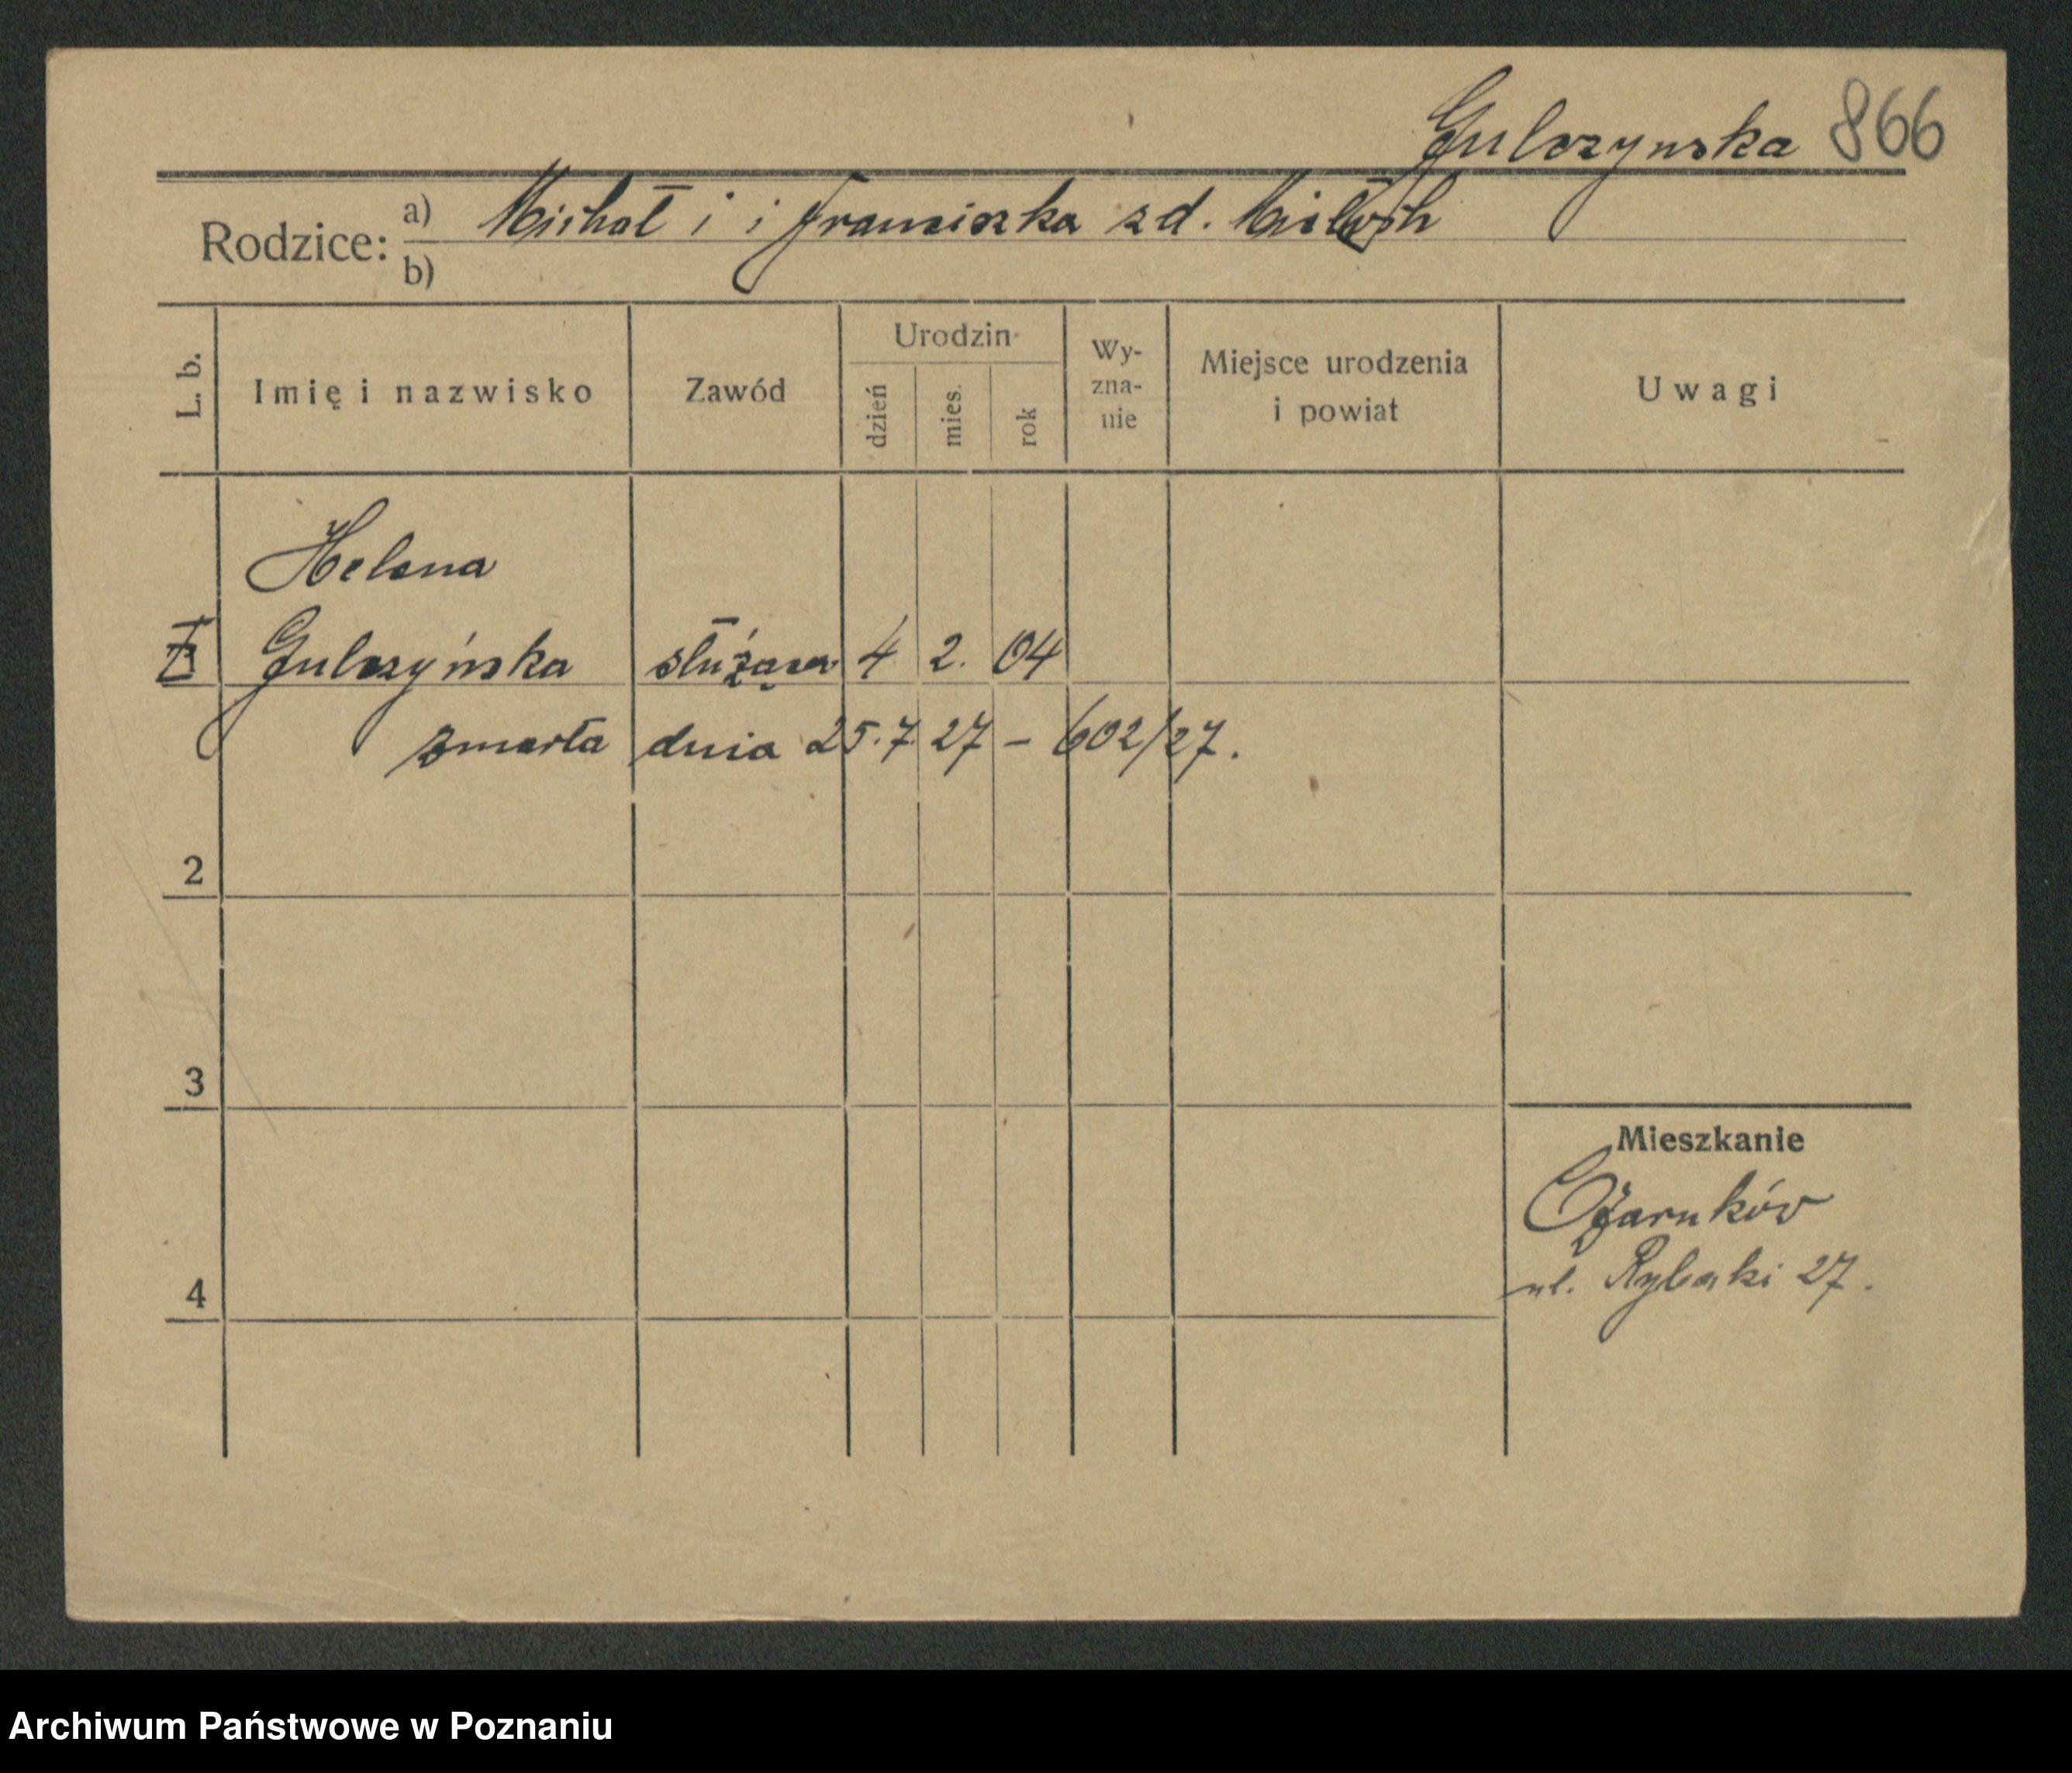 Gulczynska 866
Rodzice: a) Michał i i Franciszka zd.
b)
L. b. Imię i nazwisko Zawód Urodzin Wy-zna-nie Miejsce urodzenia i powiat Uwagi
dzień mies. rok
Helena
Gulczyńska służąca 4 2. 04
zmarła dnia 25.7 27 – 602/27.
2
3
Mieszkanie
Czarnków
4
ul. Rybaki 27.
Archiwum Państwowe w Poznaniu